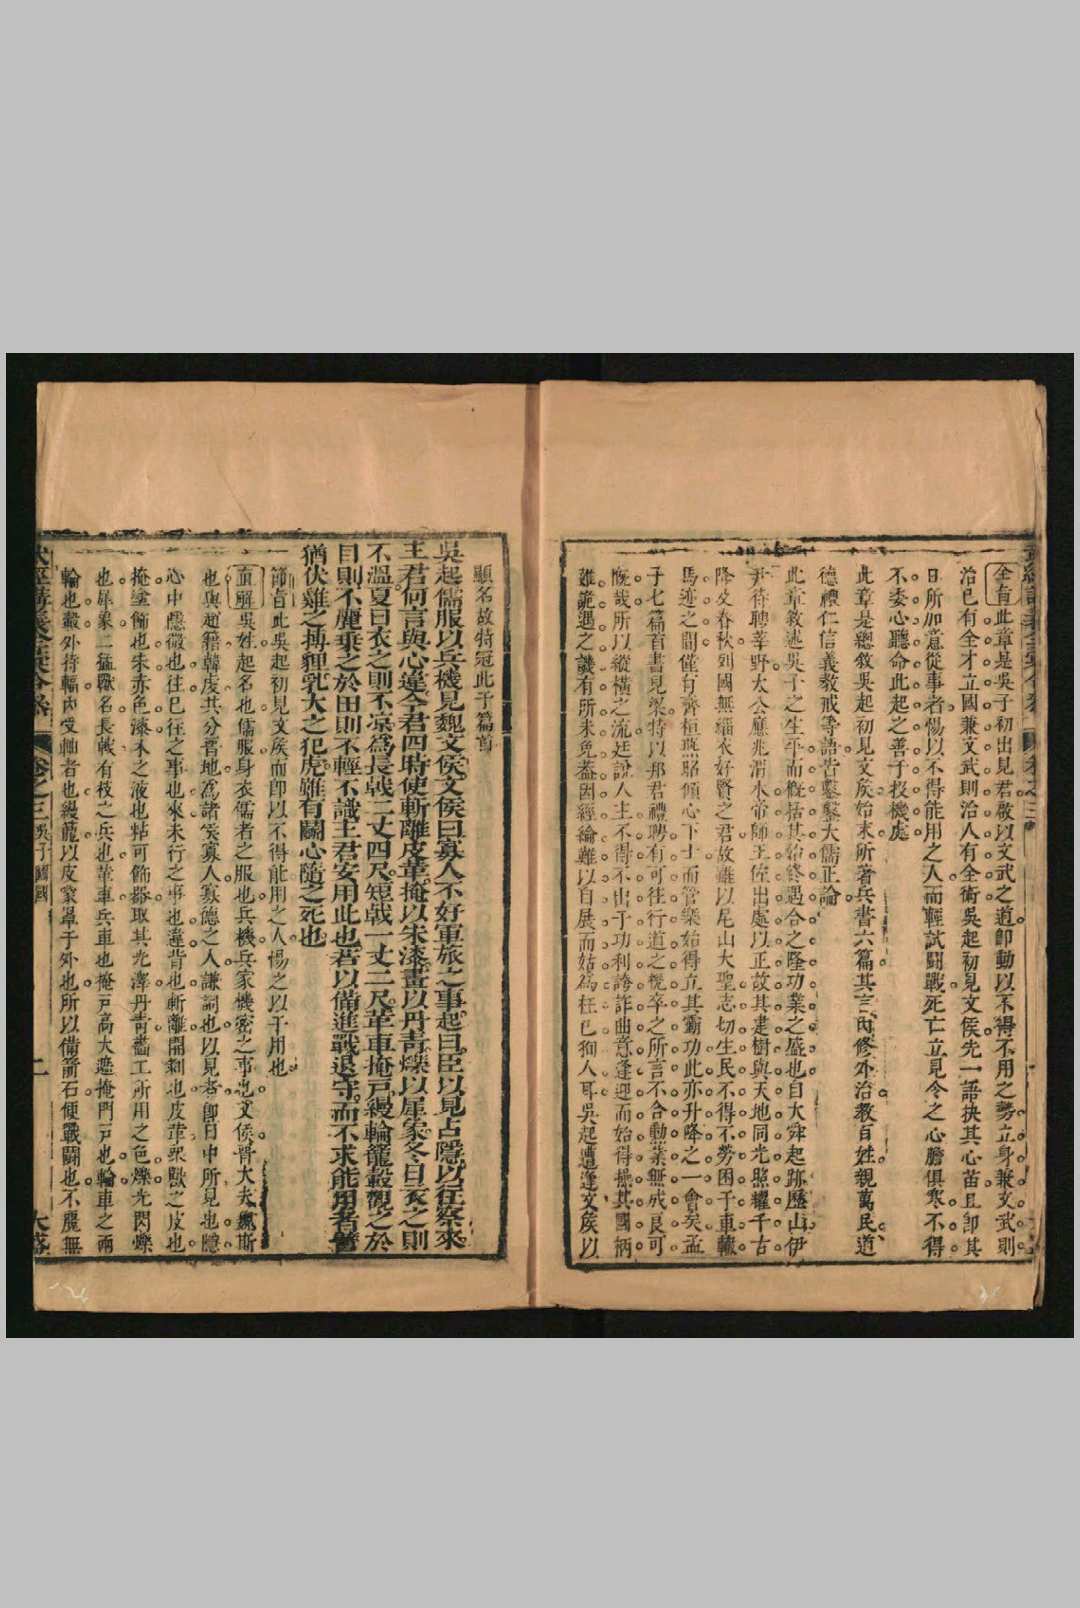 全旨此章是吳子初出見君敬以文武之道卽動以不得不用之勢立身兼文武則
治已有全才立國兼文武則治人有全術吳起初見文侯先一語抉其心苗且卽其
日所加意從事者惕以不得能用之人而輕試鬬戰死亡立見令之心膽俱寒不得
不委心聽命此起之善于投機處
此章是總敘吳起初見文侯始末所著兵書六篇其言內修外治教百姓親萬民道
德禮仁信義教戒等語皆鑿鑿大儒正論
此章敘述吳子之生平而概括其始終遇合之隆功業之盛也自大舜起跡歷山伊
尹待聘莘野太公應兆渭水帝師王佐出處以正故其建樹與天地同光照耀千古
降及春秋列國無緇衣好賢之君故雖以尼山大聖志切生民不得不勞困于車轍
馬迹之間僅有齊桓燕昭傾心下士而管樂始得立其霸功此亦升降之一會矣孟
子七篇首書見梁特以邦君禮聘有可往行道之機卒之所言不合勳業無成良可
慨哉所以縱橫之流廷說人主不得不出于功利誇詐曲意逢迎而始得操其國柄
雖詭遇之譏有所未免蓋因經綸難以自展而姑爲枉已狥人耳吳起遭逢文侯以
顯名故特冠此于篇首
吳起儒服以兵機見魏文侯文侯曰寡人不好軍旅之事起曰臣以見占隱以往察來
主君何言與心違今君四時使斬離皮革掩以朱漆畫以丹青爍以犀象冬日衣之則
不溫夏日衣之則不凉爲長戟二丈四尺短戟一丈二尺革車掩戸縵輪籠轂觀之於
目則不麗乗之於田則不輕不識主君安用此也若以備進戰退守而不求能用者譬
猶伏雞之搏貍乳犬之犯虎雖有鬬心隨之死也
節旨此吳起初見文侯而卽以不得能用之人惕之以干用也
直解吳姓起名也儒服身衣儒者之服也兵機兵家機密之事也文侯晉大夫魏斯
也與趙籍韓虔共分晋地爲諸侯寡人寡德之人謙詞也以見者卽日中所見也隱
心中隱微也往已往之事也來未行之事也違背也斬離開剝也皮革衆獸之皮也
掩塗飾也朱赤色漆木之液也粘可飾器取其光澤丹青畫工所用之色爍光閃爍
也犀象二猛獸名長戟有枝之兵也革車兵車也掩戸高大遮掩門戸也輪車之兩
輪也轂外持輻內受軸者也縵籠以皮蒙罩于外也所以備箭石便戰鬬也不麗無